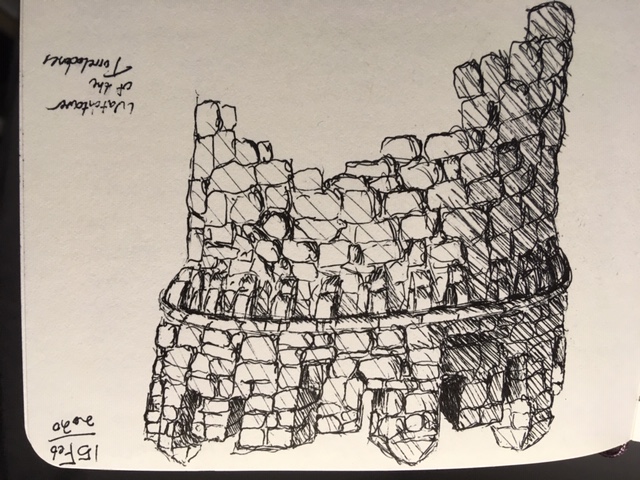 15 Feb
2020
Watchtower
of the
Torrelodones